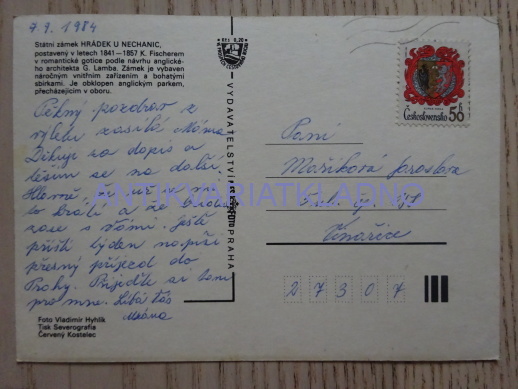 7.9.1984
Státní zámek HRÁDEK U NECHANIC,
postavený v letech 1841—1857 K. Fischerem
v romantické gotice podle návrhu anglické-
ho architekta G. Lamba. Zámek je vybaven
náročným vnitřním zařízením a bohatými
sbírkami. Je obklopen anglickým parkem,
přecházejícím v oboru.
Pěkný pozdrav z
výletu zasílá Máma
Děkuji za dopis a
těším se na další.
Hlavně, že už
to krátí a že budu
zase s Vámi. Ještě
příští týden napíši
přesný příjezd do
Prahy. Přijeďte si tam
pro mne. Líbá Vás
Máma
Foto Vladimír Hyhlík
Tisk Severografia
Červený Kostelec
VYDAVATELSTVÍ
PRAHA
Československo 50 h
Paní
Mošiková Jaroslava
Vinařice
27307
ANTIKVARIATKLADNO